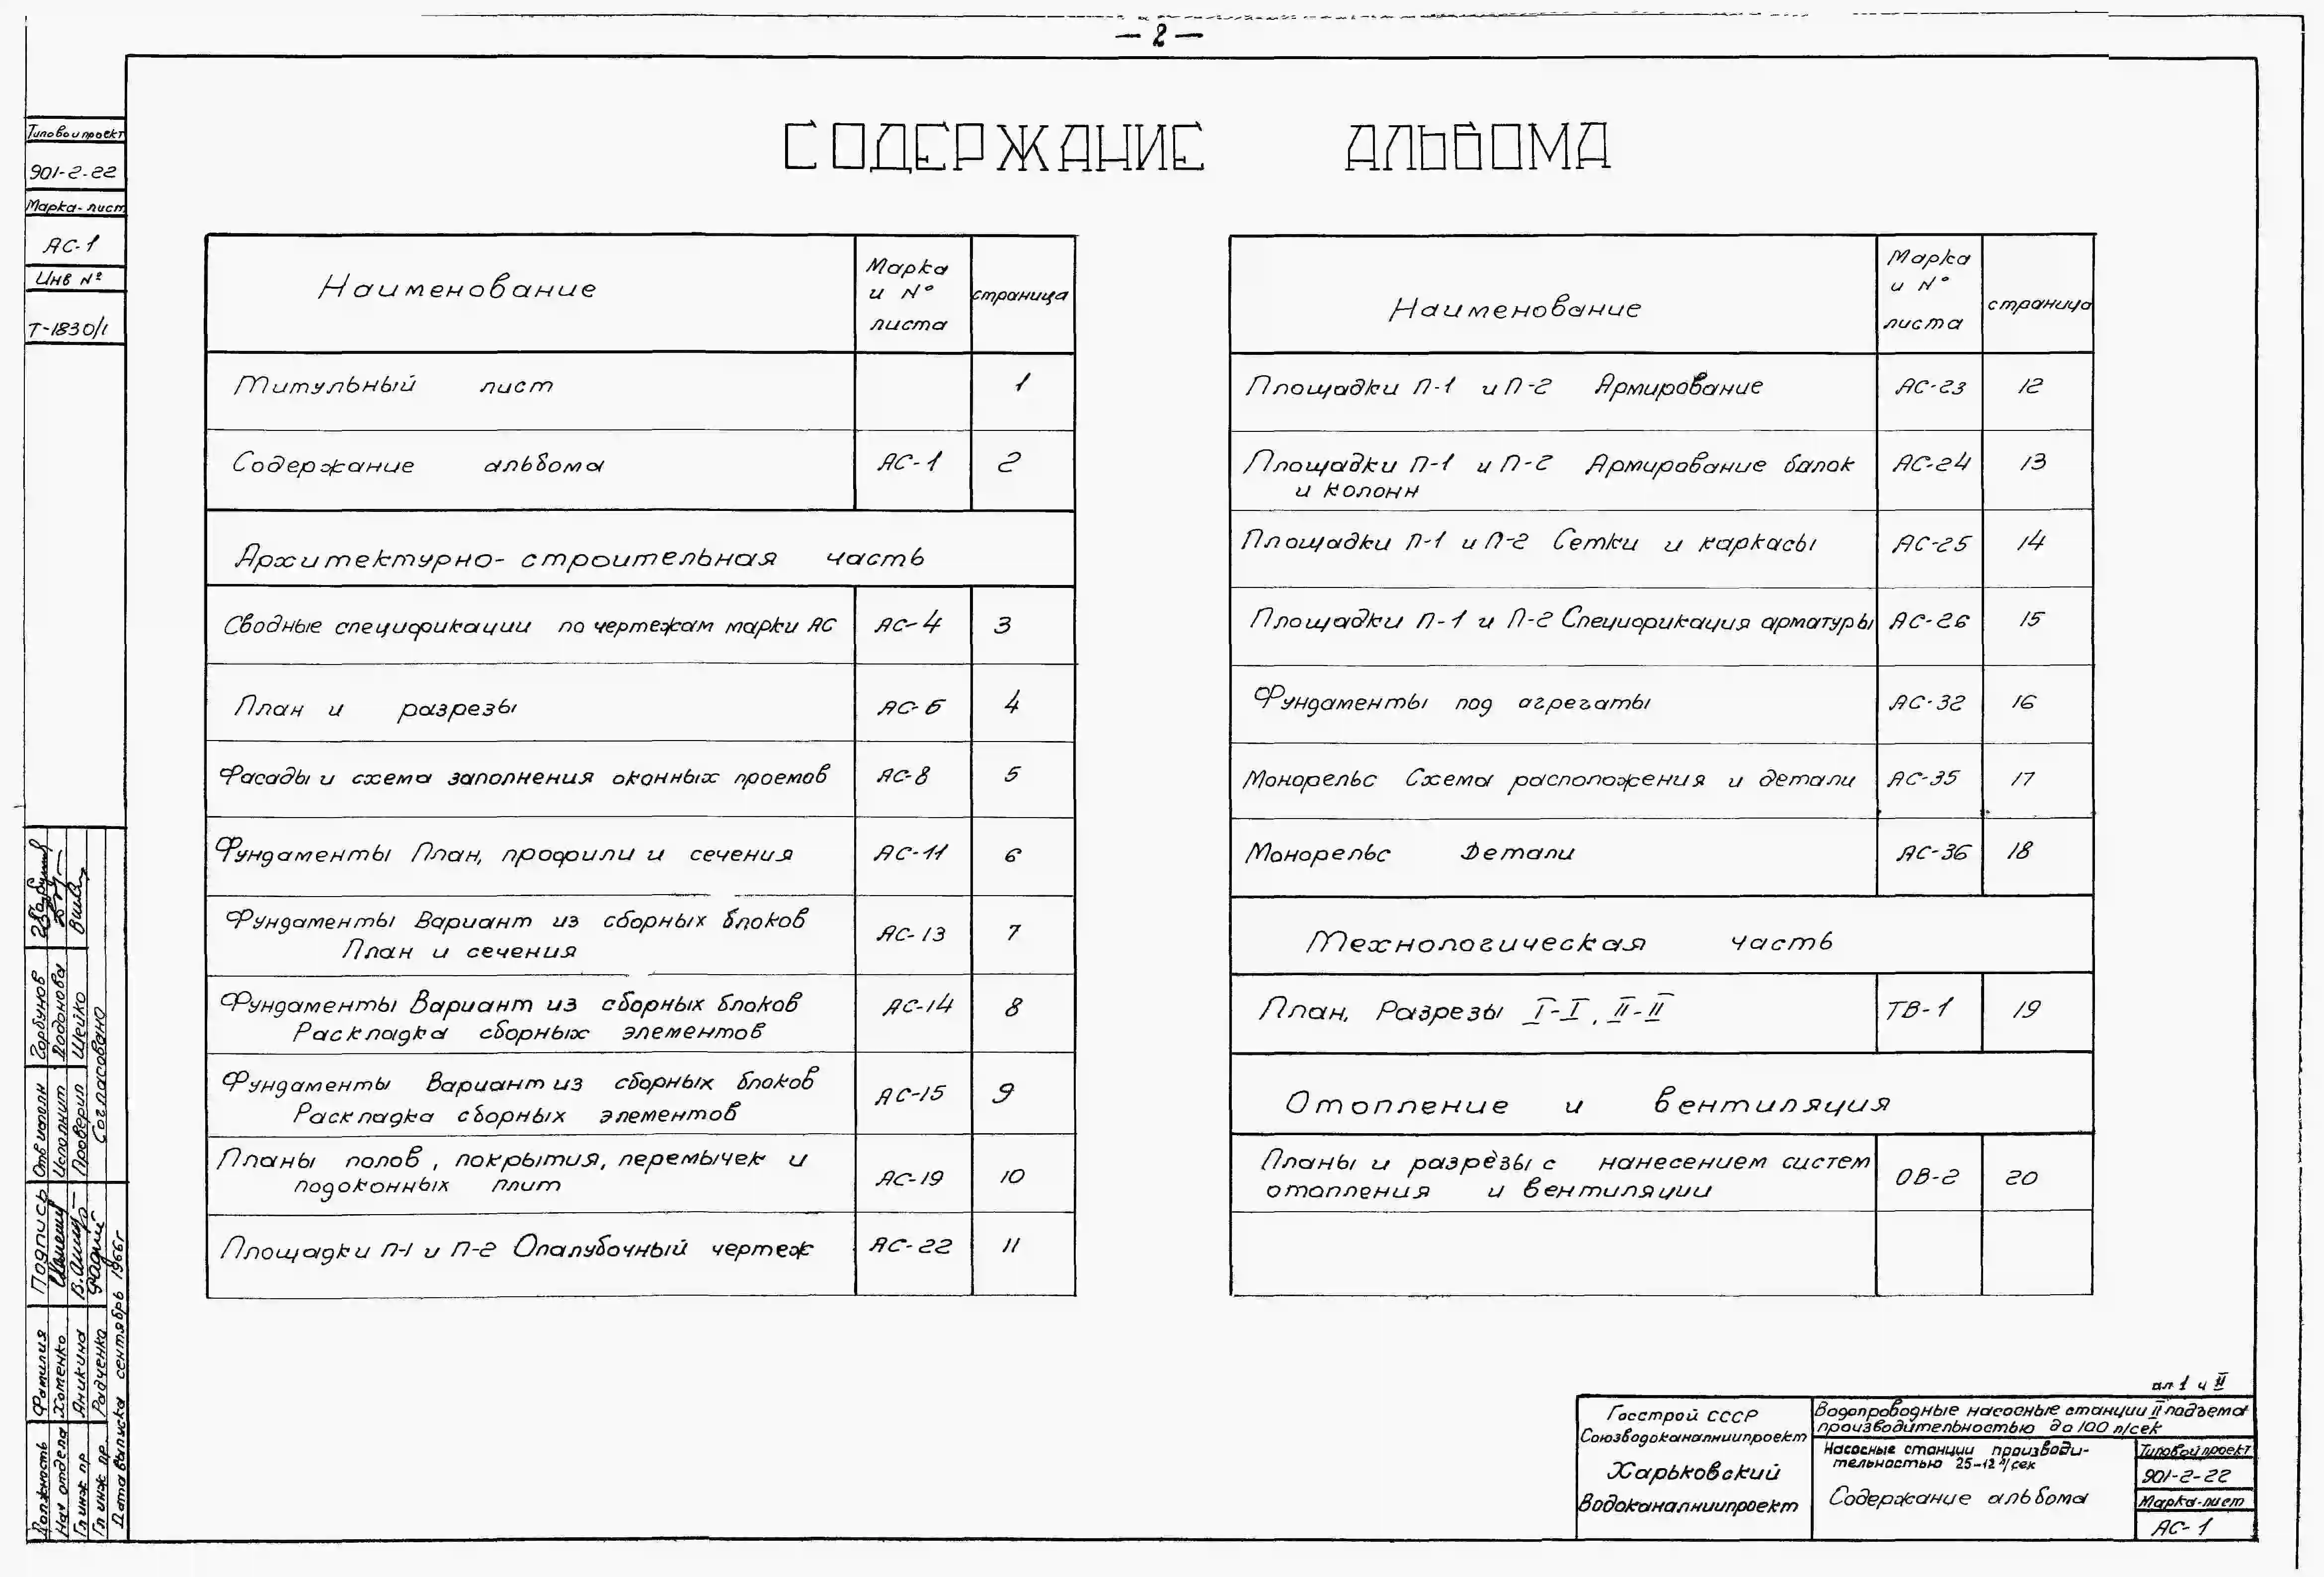 — 2 —
СОДЕРЖАНИЕ АЛЬБОМА
Типовой проект
901-2-22
Марка-лист
АС-1
Инв №
Т-1830/1
Наименование
Марка и № листа
страница
Титульный лист 1
Содержание альбома АС-1 2
Архитектурно-строительная часть
Сводные спецификации по чертежам марки АС АС-4 3
План и разрезы АС-6 4
Фасады и схема заполнения оконных проемов АС-8 5
Фундаменты План, профили и сечения АС-11 6
Фундаменты Вариант из сборных блоков
План и сечения АС-13 7
Фундаменты Вариант из сборных блоков
Раскладка сборных элементов АС-14 8
Фундаменты Вариант из сборных блоков
Раскладка сборных элементов АС-15 9
Планы полов, покрытия, перемычек и
подоконных плит АС-19 10
Площадки П-1 и П-2 Опалубочный чертеж АС-22 11
Наименование
Марка и № листа
страница
Площадки П-1 и П-2 Армирование АС-23 12
Площадки П-1 и П-2 Армирование балок
и колонн АС-24 13
Площадки П-1 и П-2 Сетки и каркасы АС-25 14
Площадки П-1 и П-2 Спецификация арматуры АС-26 15
Фундаменты под агрегаты АС-32 16
Монорельс Схема расположения и детали АС-35 17
Монорельс Детали АС-36 18
Технологическая часть
План, Разрезы I-I, II-II ТВ-1 19
Отопление и вентиляция
Планы и разрезы с нанесением систем
отопления и вентиляции ОВ-2 20
Отв исполн Горбунов
Исполнит Додонова
Проверил Шейко
Согласовано
Должность Фамилия Подпись
Нач отдела Хоменко
Гл инж пр Аникина
Гл инж пр. Радченко
Дата выпуска сентябрь 1966г
ал 1 ч II
Госстрой СССР
Союзводоканалниипроект
Харьковский
Водоканалниипроект
Водопроводные насосные станции II подъема
производительностью до 100 л/сек
Насосные станции производи-
тельностью 25-12 л/сек
Содержание альбома
Типовой проект
901-2-22
Марка-лист
АС-1